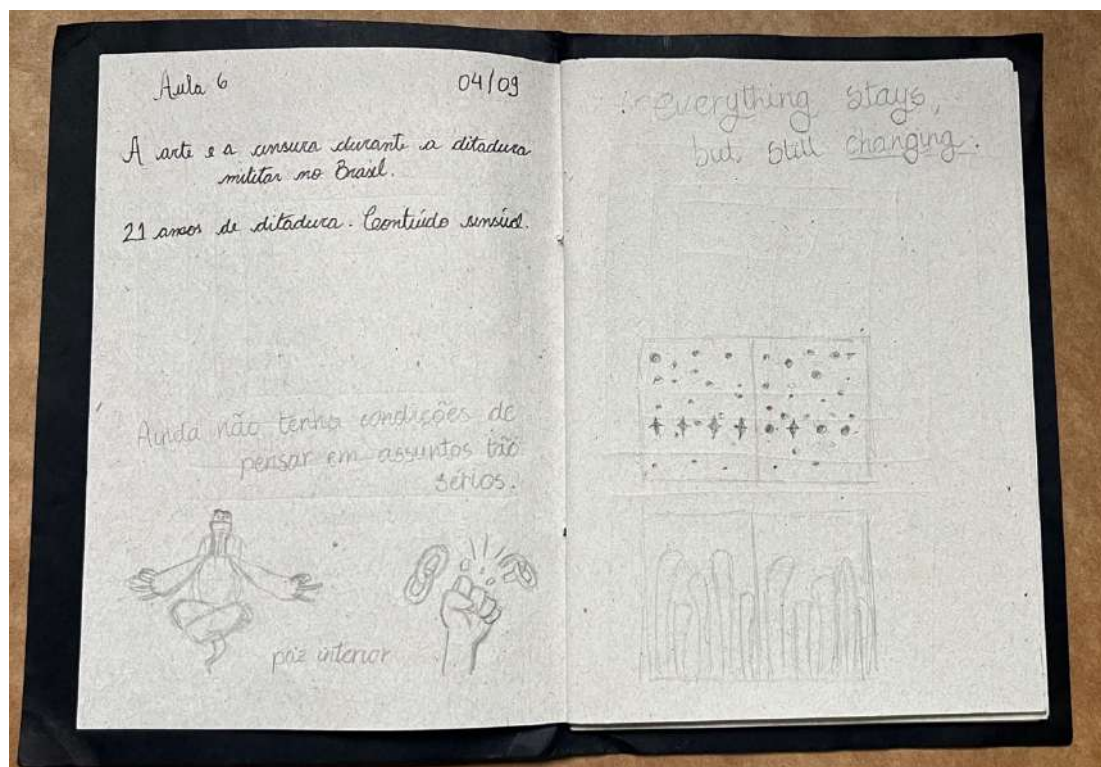 Aula 6
04/09
A arte e a censura durante a ditadura
militar no Brasil.
21 anos de ditadura. Conteúdo sensível.
Ainda não tenho condições de
pensar em assuntos tão
sérios.
paz interior
everything stays,
but still changing.